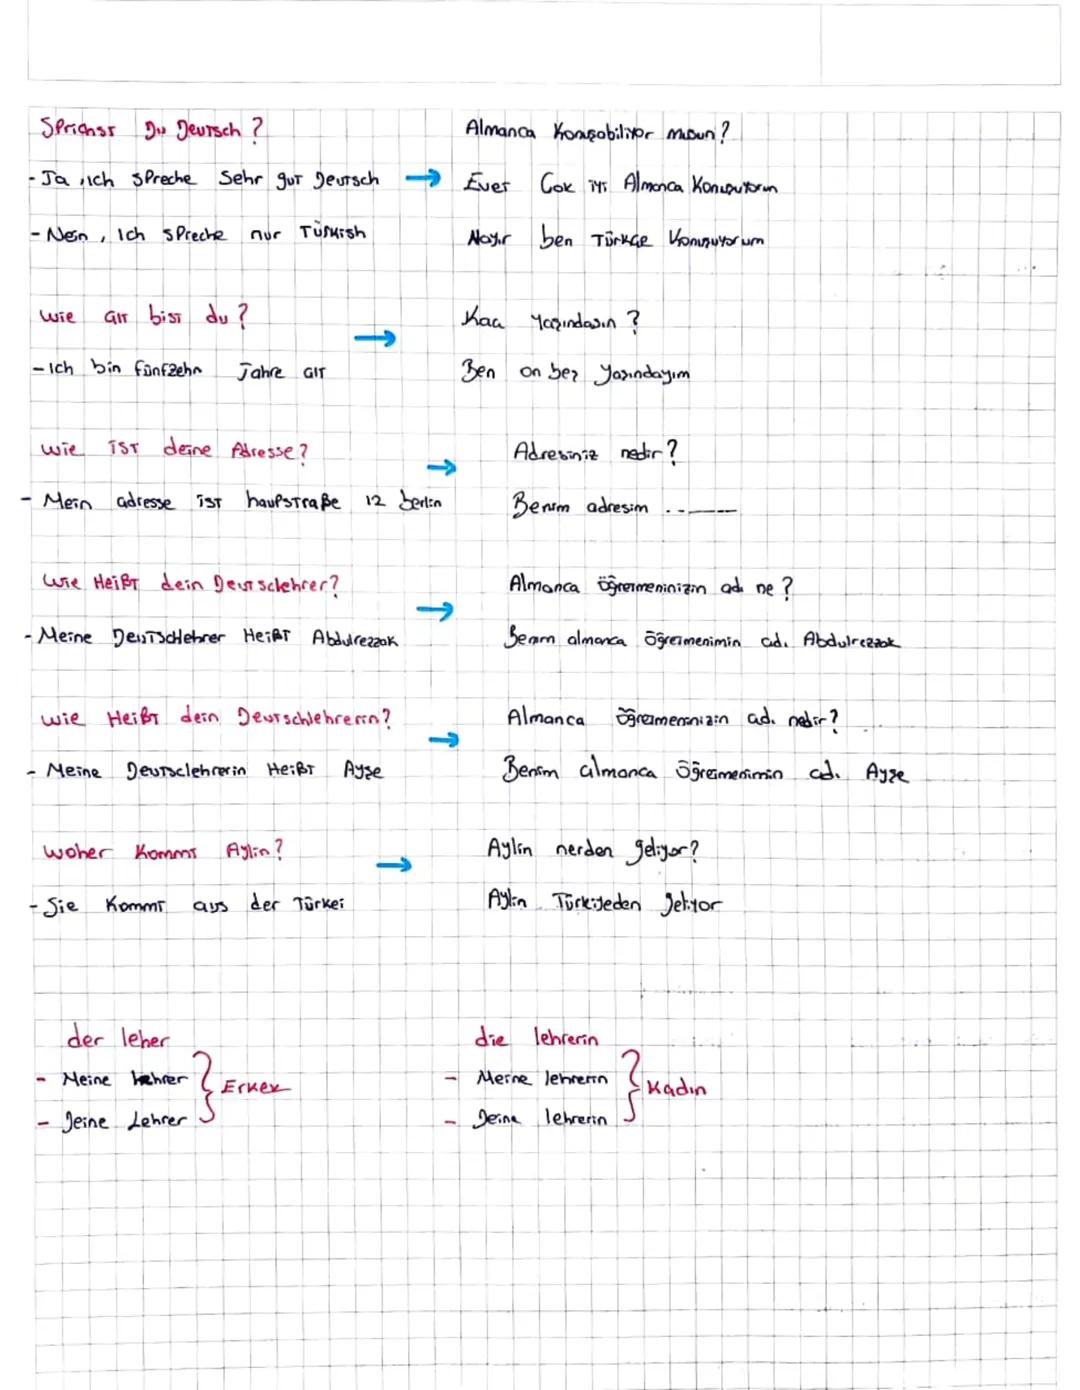 Sprichst Du Deutsch ?
Almanca Konuşabiliyor musun ?
- Ja , ich spreche Sehr gut Deutsch → Evet Çok iyi Almanca Konuşuyorum
- Nein , Ich spreche nur Türkish
Hayır ben Türkçe Konuşuyorum
wie alt bist du ? → Kaç Yaşındasın ?
- Ich bin fünfzehn Jahre alt
Ben on beş Yaşındayım
wie ist deine Adresse ? → Adresiniz nedir ?
- Mein adresse ist haupstraße 12 berlin
Benim adresim ..____
wie Heißt dein Deutsclehrer ? → Almanca öğretmeninizin adı ne ?
- Meine Deutschlehrer Heißt Abdulrezzak
Benim almanca öğretmenimin adı Abdulrezzak
wie Heißt dein Deutschlehrerin ? → Almanca öğretmeninizin adı nedir ?
- Meine Deutsclehrerin Heißt Ayşe
Benim almanca öğretmenimin adı Ayşe
woher Kommt Aylin ? → Aylin nerden geliyor ?
- Sie Kommt aus der Türkei
Aylin Türkiyeden geliyor
der leher
- Meine lehrer
- Deine Lehrer
Erkek
die lehrerin
- Meine lehrerin
- Deine lehrerin
Kadın